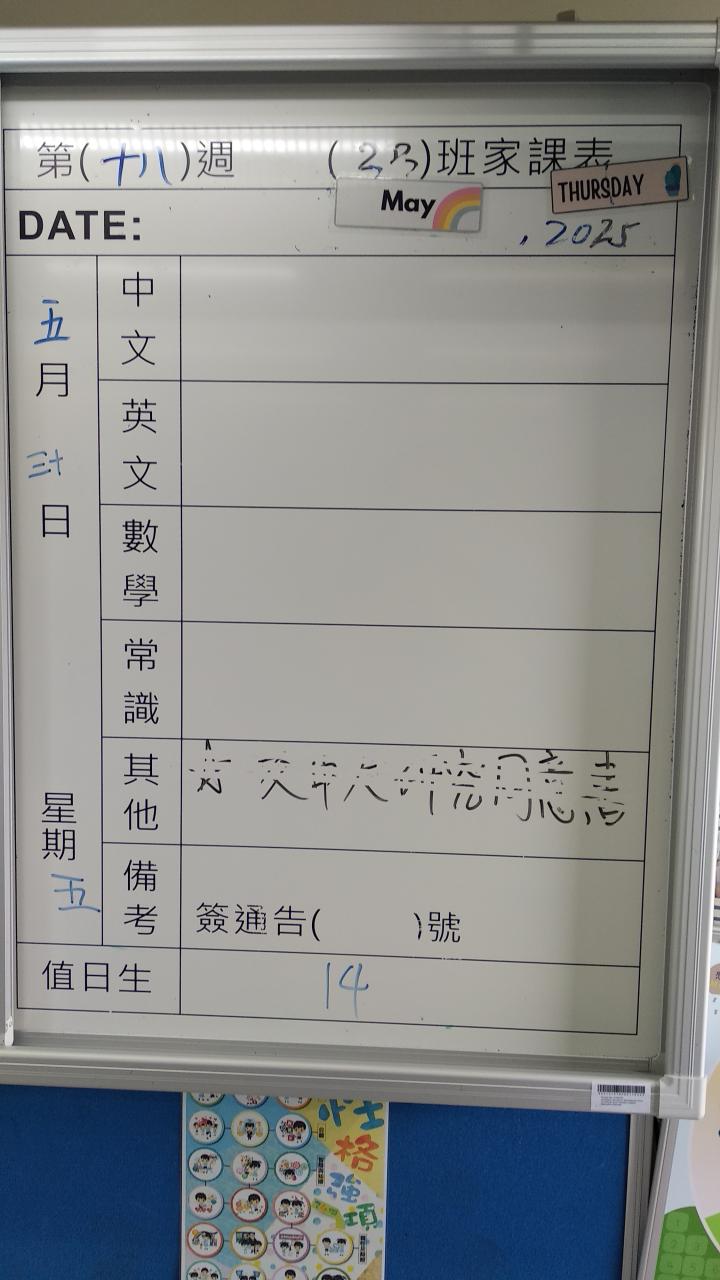 第(十八)週 (2B)班家課表
THURSDAY
May
DATE: , 2025
五月三十日 星期五
中文
英文
數學
常識
其他 同意書
備考 簽通告( )號
值日生 14
性格強項